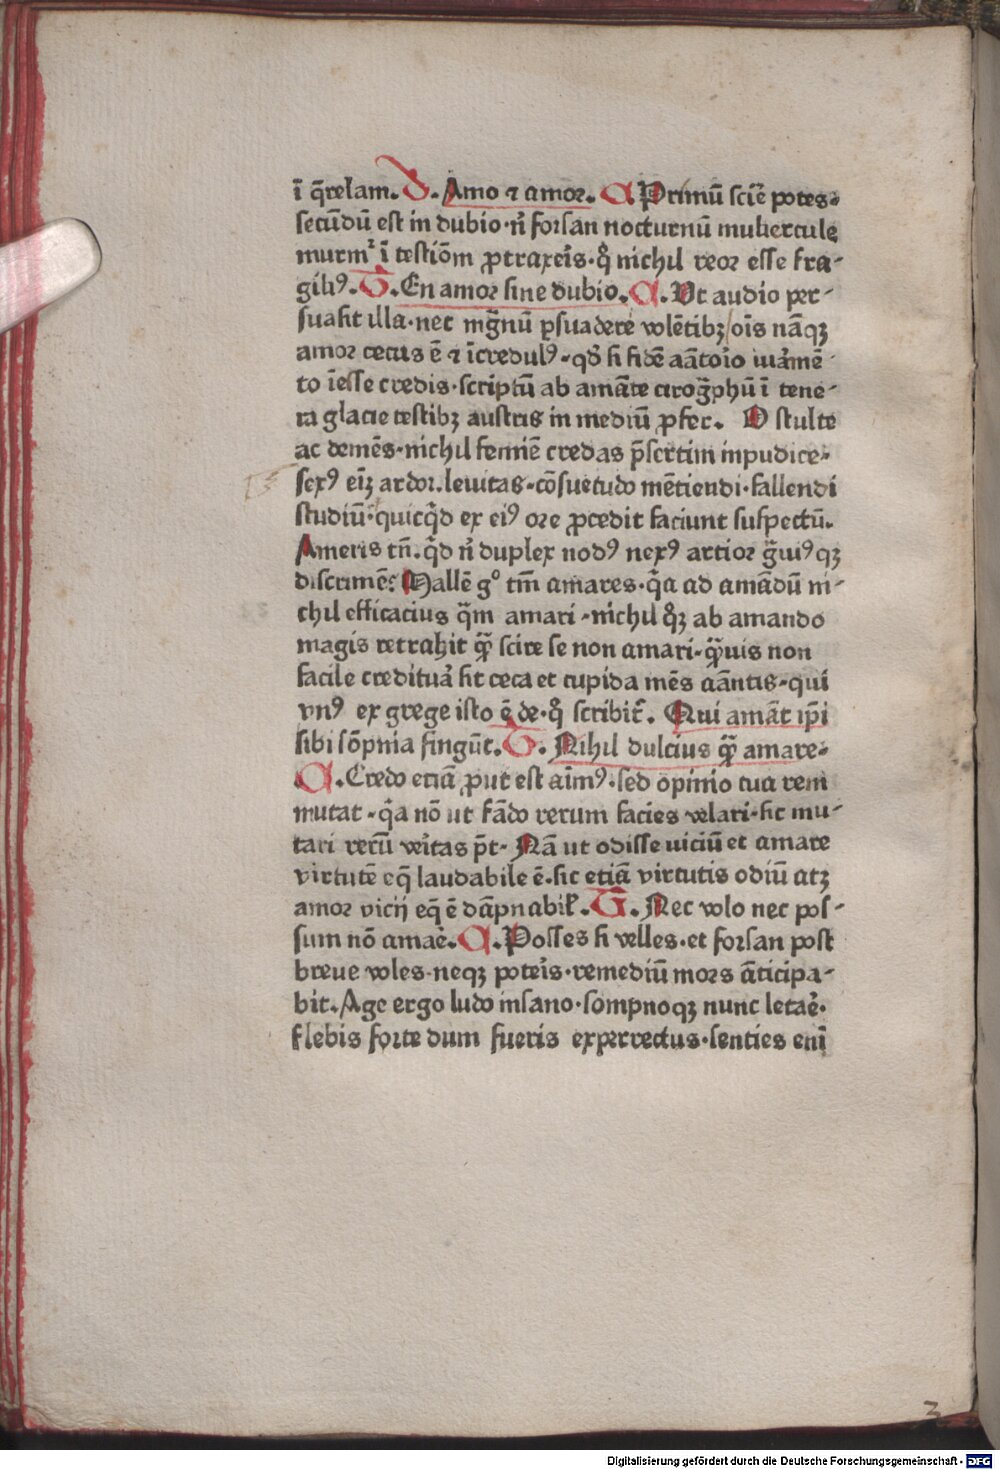 ī q̄relam. G. Amo ⁊ amor. A. Primū scir̄e potes.
secūdū est in dubio·n̄ forsan nocturnū muliercule
murmꝰ ī testiōm ꝓtraxer̄is·qd̄ nichil reor esse fra-
giliꝰ. G. En amor sine dubio. A. Ut audio per-
suasit illa·nec mg̅nū ꝑsuadere volētibꝫ/oīs nāqꝫ
amor cecus ē ⁊ īcredulꝰ·qd̄ si fidē aāntoꝝ iuramē-
to īesse credis·scriptū ab amāte cirog̅phū ī tene-
ra glacie testibꝫ austris in mediū ꝓfer. O stulte
ac demēs·nichil fermē credas p̄sertim inpudice·
sexꝰ eīꝫ ardor.leuitas·cōsuetudo mētiendi·fallendi
studiū·quicq̄d ex eiꝰ ore ꝓcedit faciunt suspectū.
Ameris tn̄·q̄d n̄ duplex nodꝰ nexꝰ artior g̅uiꝰqꝫ
discrimē: Mallē gº tm̄ amares·q̄a ad amādū ni-
chil efficacius q̄m amari·nichil qꝫ ab amando
magis retrahit qꝫ̄ scire se non amari·qꝫ̄uis non
facile creditura sit ceca et cupida mēs aāntis·qui
vnꝰ ex grege isto ē de·q̄ scribit̄. Qui amāt ip̄i
sibi sōpnia fingūt. G. Nihil dulcius qꝫ̄ amare·
A. Credo etiā ꝓut est aīmꝰ·sed opinio tua rem
mutat·q̄a nō ut fādo rerum facies velari·sic mu-
tari rerū ver̄itas p̄t· Nā ut odisse uiciū et amare
virtutē eq̄ laudabile ē·sic etiā virtutis odiū atꝫ
amor vicij eq̄ ē dāpnabil̄. G. Nec volo nec pos-
sum nō amar̄e. A. Posses si velles·et forsan post
breue voles·neqꝫ poter̄is·remediū mors āticipa-
bit. Age ergo ludo insano·sompnoqꝫ nunc letar̄e·
flebis forte dum fueris experrectus·senties enī
3
Digitalisierung gefördert durch die Deutsche Forschungsgemeinschaft - DFG